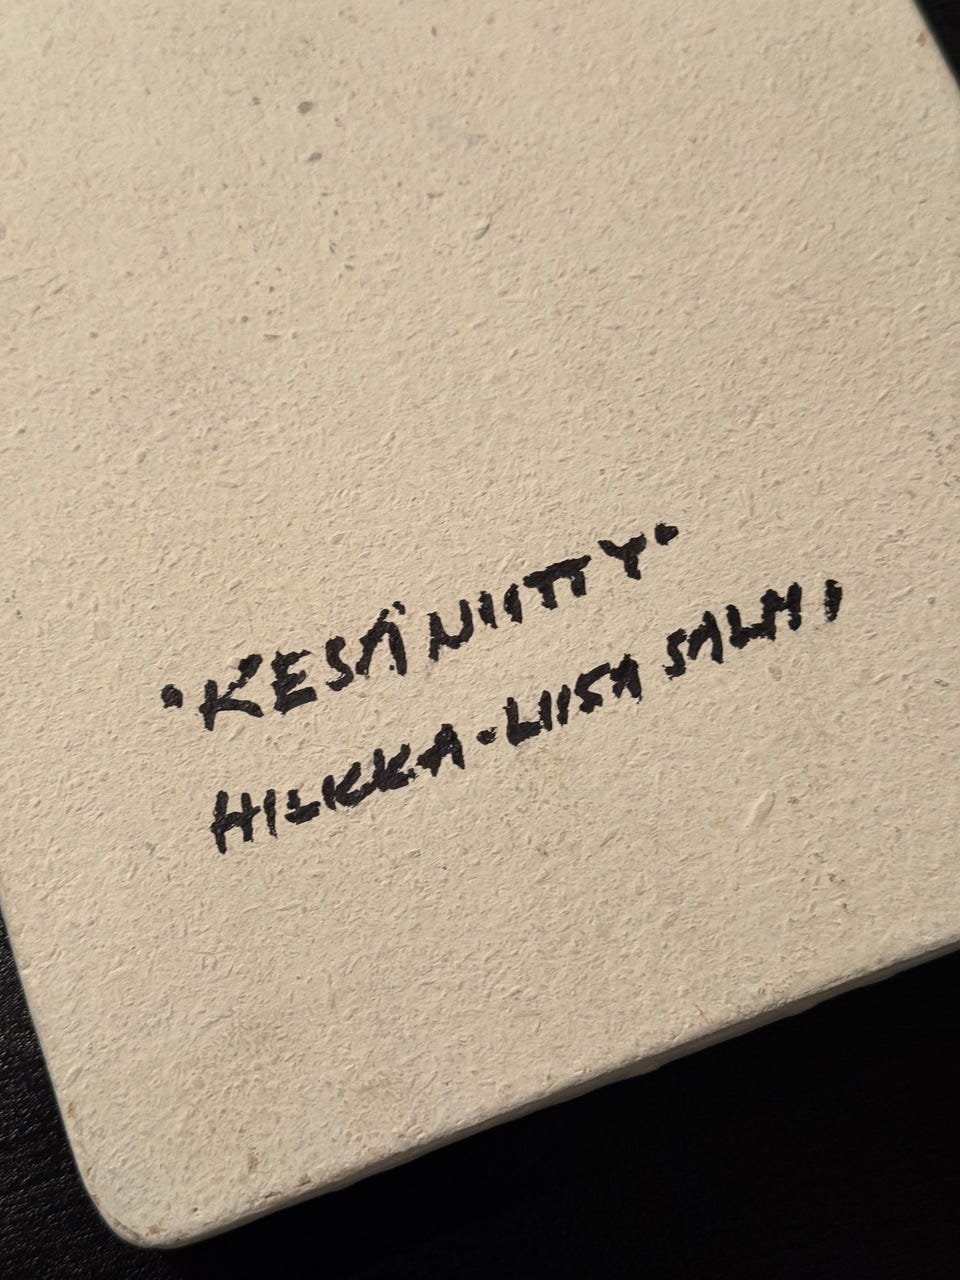 "KESÄNIITTY"
HILKKA-LIISA SALMI